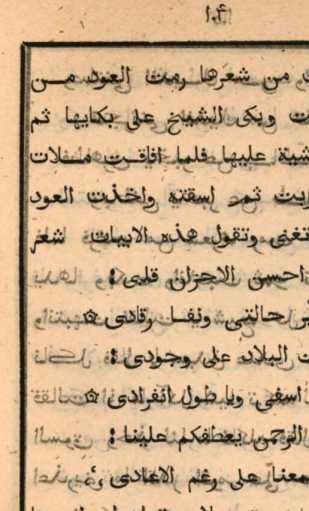 ١٠٤
من شعرها رمت العود مـن
وبكى الشيخ على بكايها ثم
عليها فلما افاقـت مـلات
ثم اسقته واخذت العود
تغنى وتقول هذه الابيات شعر
احسن الاحزان قلبى :
حالتى ونفـا رقادى ☆
البلاد على وجودى :
اسفى ويا طول انفرادى ☆
الرحمن يعطفكم علينا :
على رغم الاعادى